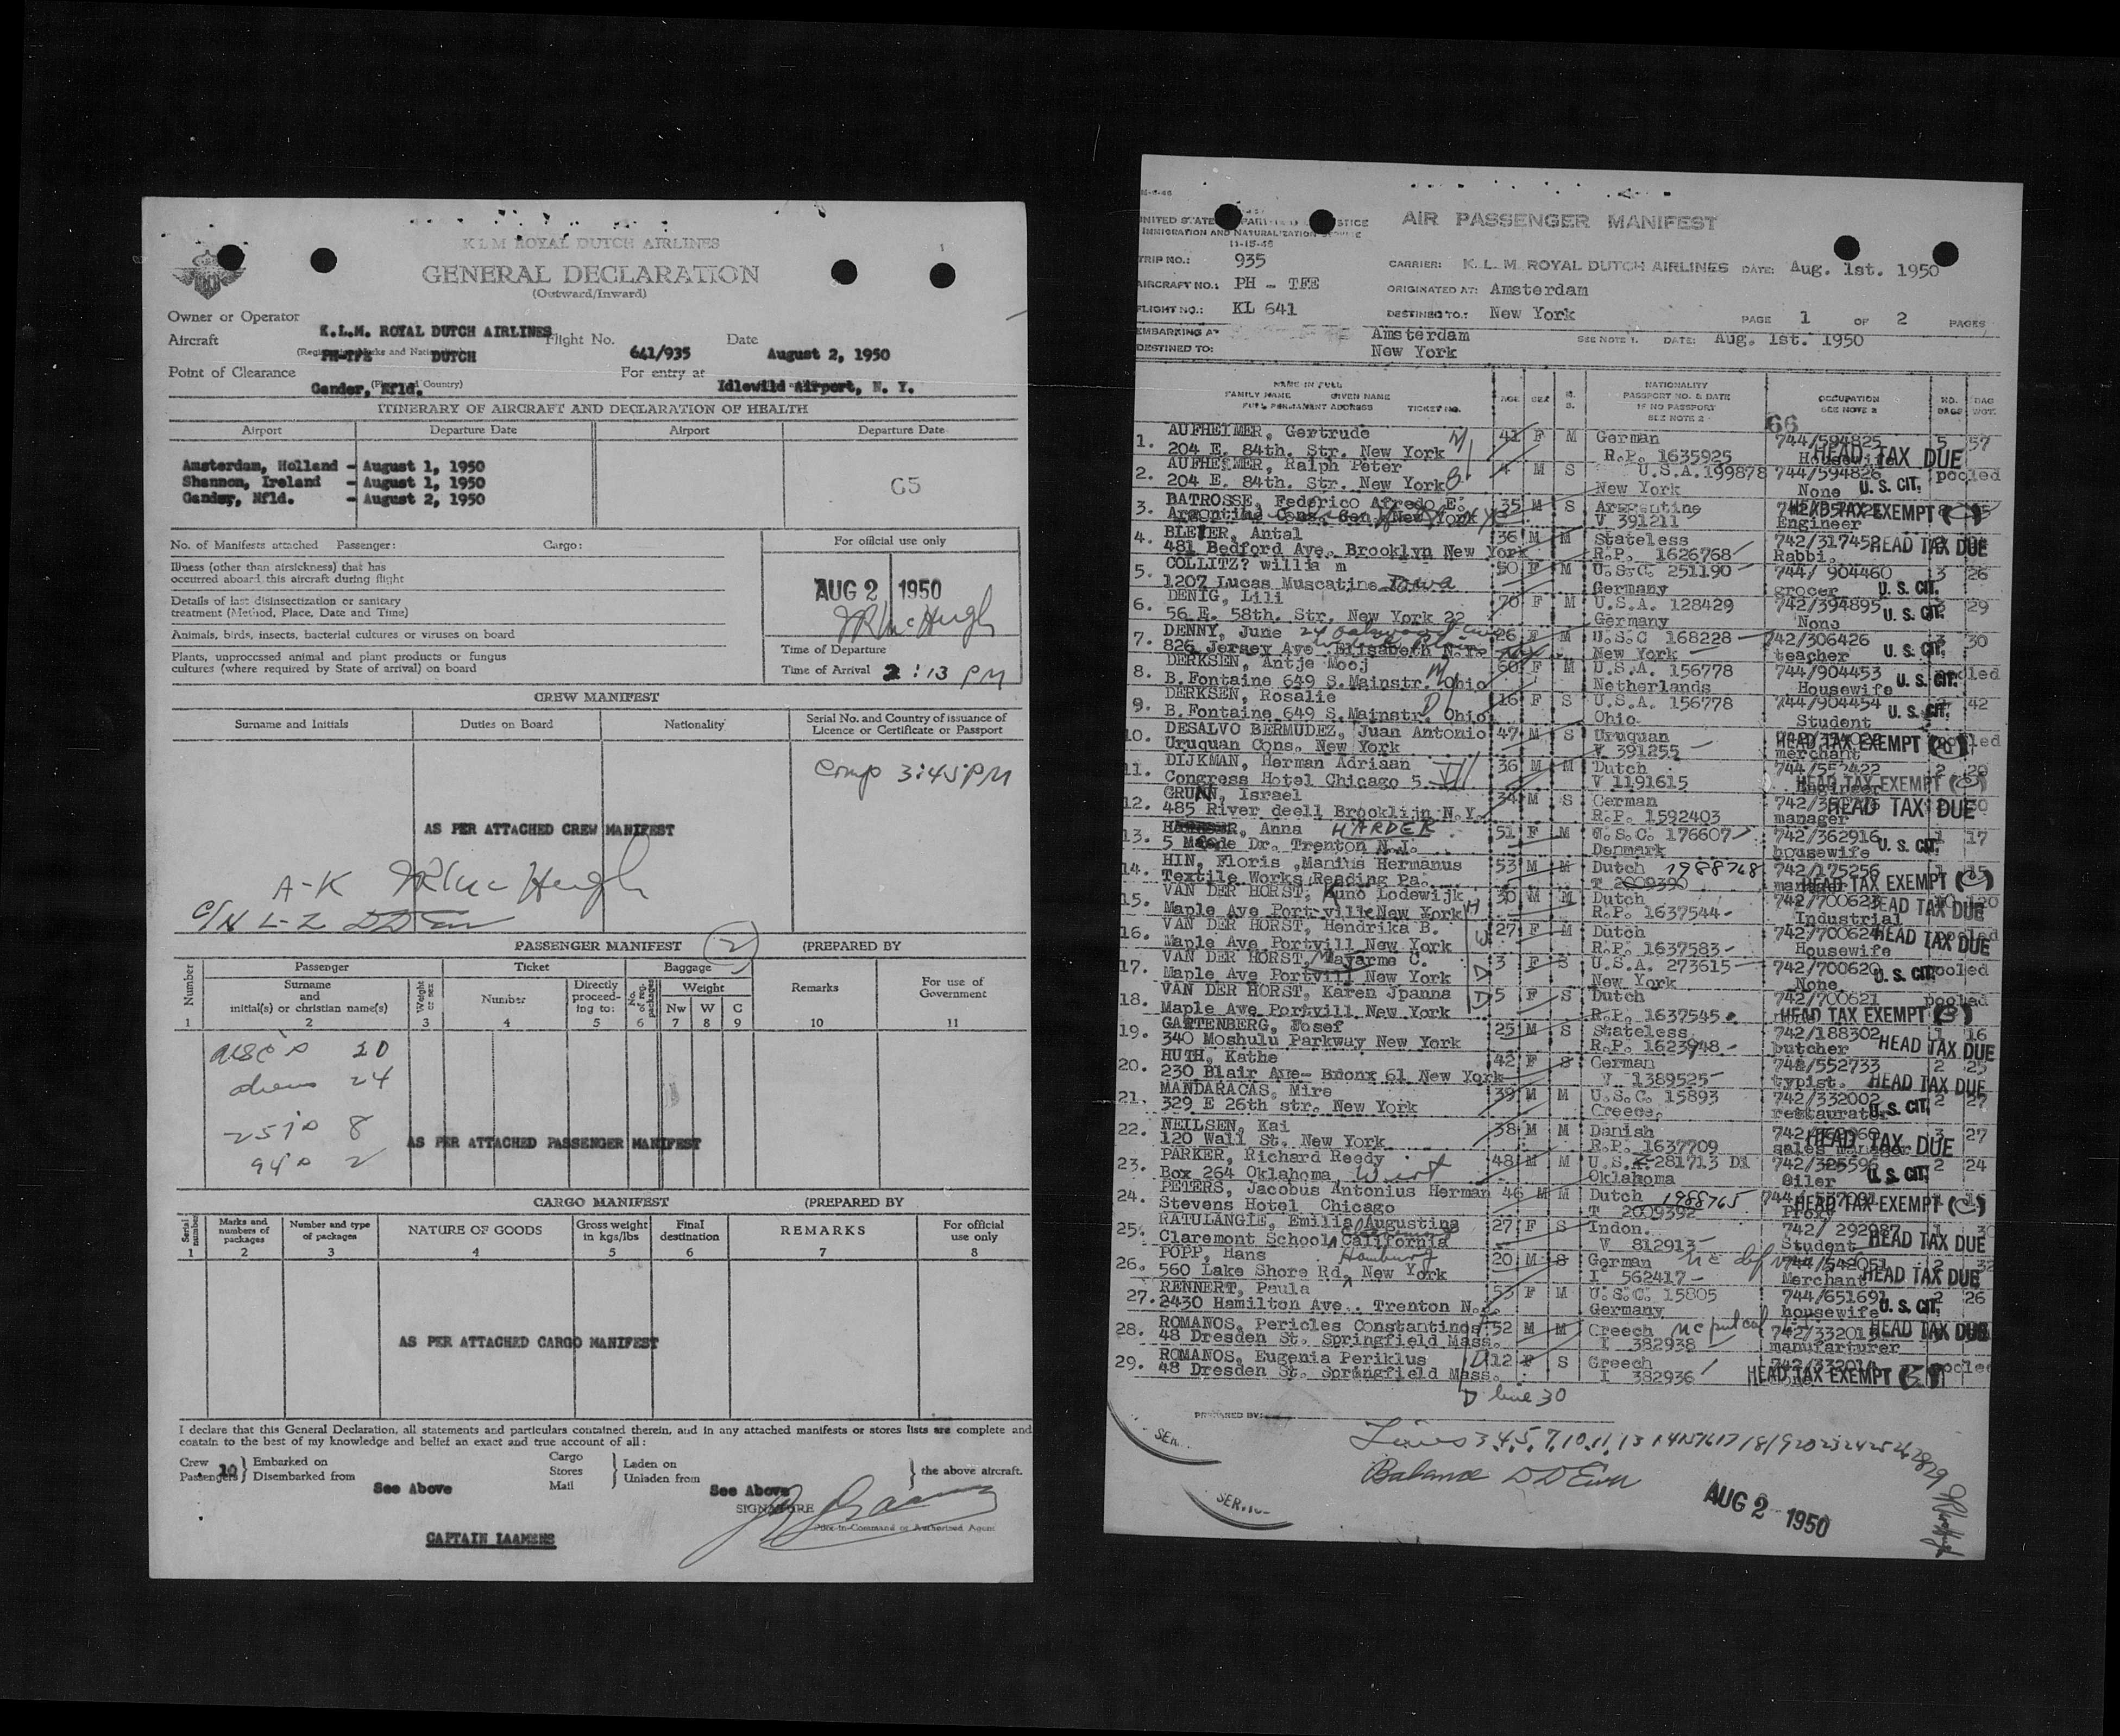 K L M ROYAL DUTCH AIRLINES
GENERAL DECLARATION
(Outward/Inward)
Owner or Operator
K.L.M. ROYAL DUTCH AIRLINES
Aircraft
Flight No. 641/935
Date August 2, 1950
PH-TFE DUTCH
Point of Clearance
Gander, Nfld.
For entry at
Idlewild Airport, N. Y.
ITINERARY OF AIRCRAFT AND DECLARATION OF HEALTH
Airport Departure Date Airport Departure Date
Amsterdam, Holland - August 1, 1950
Shannon, Ireland - August 1, 1950
Gander, Nfld. - August 2, 1950
65
No. of Manifests attached Passenger: Cargo:
Illness (other than airsickness) that has
occurred aboard this aircraft during flight
Details of last disinsectization or sanitary
treatment (Method, Place, Date and Time)
Animals, birds, insects, bacterial cultures or viruses on board
Plants, unprocessed animal and plant products or fungus
cultures (where required by State of arrival) on board
For official use only
AUG 2 1950
JR McHugh
Time of Departure
Time of Arrival 2:13 PM
CREW MANIFEST
Surname and Initials Duties on Board Nationality Serial No. and Country of issuance of
Licence or Certificate or Passport
Comp 3:45 PM
AS PER ATTACHED CREW MANIFEST
A-K JR McHugh
L-Z
PASSENGER MANIFEST 2 (PREPARED BY
Number
Passenger Ticket Baggage Remarks For use of
Government
Surname
and
initial(s) or christian name(s)
Weight or sex
Number
Directly
proceed-
ing to:
No. of reg. packages
Weight
Nw W C
1 2 3 4 5 6 7 8 9 10 11
20
24
8
2
AS PER ATTACHED PASSENGER MANIFEST
CARGO MANIFEST (PREPARED BY
Serial number
Marks and
numbers of
packages
Number and type
of packages
NATURE OF GOODS
Gross weight
in kgs/lbs
Final
destination
REMARKS
For official
use only
1 2 3 4 5 6 7 8
AS PER ATTACHED CARGO MANIFEST
I declare that this General Declaration, all statements and particulars contained therein, and in any attached manifests or stores lists are complete and
contain to the best of my knowledge and belief an exact and true account of all:
Crew 10 Embarked on
Passengers Disembarked from
See Above
Cargo
Stores
Mail
Laden on
Unladen from
See Above
the above aircraft.
SIGNATURE
Pilot-in-Command or Authorized Agent
CAPTAIN LAAMENS
UNITED STATES DEPARTMENT OF JUSTICE
IMMIGRATION AND NATURALIZATION SERVICE
11-15-46
AIR PASSENGER MANIFEST
TRIP NO.: 935
CARRIER: K. L. M. ROYAL DUTCH AIRLINES DATE: Aug. 1st. 1950
AIRCRAFT NO.: PH - TFE
ORIGINATED AT: Amsterdam
FLIGHT NO.: KL 641
DESTINED TO: New York
PAGE 1 OF 2 PAGES
EMBARKING AT Amsterdam SEE NOTE 1. DATE: Aug. 1st. 1950
DESTINED TO: New York
NAME IN FULL
FAMILY NAME GIVEN NAME
FULL PERMANENT ADDRESS TICKET NO.
AGE SEX M. S.
NATIONALITY
PASSPORT NO. & DATE
IF NO PASSPORT
SEE NOTE 2
OCCUPATION
SEE NOTE 2
NO. BAGS BAG WGT.
66
1. AUFHEIMER, Gertrude 41 F M German 744/594825 5 57
204 E. 84th. Str. New York R.P. 1635925 Housewife HEAD TAX DUE
2. AUFHEIMER, Ralph Peter 4 M S U.S.A. 199878 744/594826 pooled
204 E. 84th. Str. New York New York None U. S. CIT.
3. BATROSSE, Federico Afredo E. 35 M S Aregentine HEAD TAX EXEMPT
Argentine Cons. Gen. New York V 391211 Engineer
4. BLEIER, Antal 36 M M Stateless 742/317452 HEAD TAX DUE
481 Bedford Ave. Brooklyn New York R.P. 1626768 Rabbi
5. COLLITZ? willia m 50 F M U.S.C. 251190 744/ 904460 3 26
1207 Lucas Muscatine Iowa Germany grocer U. S. CIT.
6. DENIG, Lili 70 F M U.S.A. 128429 742/394895 29
56 E. 58th. Str. New York 22 Germany None U. S. CIT.
7. DENNY, June 26 F M U.S.C 168228 742/306426 30
826 Jersey Ave Elisabeth N.Y. New York teacher U. S. CIT.
8. DERKSEN, Antje Mooj 60 F M U.S.A. 156778 744/904453
B. Fontaine 649 S. Mainstr. Ohio Netherlands Housewife U. S. CIT.
9. DERKSEN, Rosalie 16 F S U.S.A. 156778 744/904454 42
B. Fontaine 649 S. Mainstr. Ohio Ohio Student U. S. CIT.
10. DESALVO BERMUDEZ, Juan Antonio 47 M S Uruquan HEAD TAX EXEMPT
Uruquan Cons. New York V 391255 merchant
11. DIJKMAN, Herman Adriaan 36 M M Dutch 744/552422 2 20
Congress Hotel Chicago 5. Ill V 1191615 Engineer HEAD TAX EXEMPT
12. GRUNN, Israel 34 M S German HEAD TAX DUE
485 River deell Brooklijn N.Y. R.P. 1592403 manager
13. Anna HARDER 51 F M U.S.C. 176607 742/362916 1 17
5 Dr. Trenton N.J. Denmark housewife U. S. CIT.
14. HIN, Floris ,Manius Hermanus 53 M M Dutch 1988768 742/175256 1 15
Textile Works Reading Pa. T 2009390 manager HEAD TAX EXEMPT
15. VAN DER HORST, Kuno Lodewijk 30 M M Dutch 742/700623 HEAD TAX DUE
Maple Ave Portville New York H R.P. 1637544 Industrial
16. VAN DER HORST, Hendrika B. 27 F M Dutch 742/700624 HEAD TAX DUE
Maple Ave Portvill New York W R.P. 1637583 Housewife
17. VAN DER HORST, Mayarme C. 3 F S U.S.A. 273615 742/700620 pooled
Maple Ave Portvill New York D New York None U. S. CIT.
18. VAN DER HORST, Karen Jpanna D 5 F S Dutch 742/700621 pooled
Maple Ave Portvill New York R.P. 1637545 HEAD TAX EXEMPT
19. GATTENBERG, Josef 25 M S Stateless 742/188302 1 16
340 Moshulu Parkway New York R.P. 1623948 butcher HEAD TAX DUE
20. HUTH, Kathe 42 F S German 742/552733 2 25
230 Blair Ave- Bronx 61 New York V 1389525 typist. HEAD TAX DUE
21. MANDARACAS, Mire 39 M M U.S.C. 15893 742/332002 2 27
329 E 26th str. New York Greece. U. S. CIT.
22. NEILSEN, Kai 38 M M Danish 27
120 Wall St. New York R.P. 1637709 sales manager HEAD TAX DUE
23. PARKER, Richard Reedy 48 M M U.S. 281713 D1 742/325596 2 24
Box 264 Oklahoma Oklahoma Oiler U. S. CIT.
24. PETERS, Jacobus Antonius Herman 46 M M Dutch 1988765 HEAD TAX EXEMPT
Stevens Hotel Chicago T 2009392 Proxy
25. RATULANGIE, Emilia Augustina 27 F S Indon. 742/ 292987 1 30
Claremont School California V 812913 Student HEAD TAX DUE
26. POPP, Hans Hamburg 20 M S German 744/542051 2 32
560 Lake Shore Rd. New York I 562417 Merchant HEAD TAX DUE
27. RENNERT, Paula 53 F M U.S.C. 15805 744/651691 2 26
2430 Hamilton Ave.. Trenton N.J. Germany housewife U. S. CIT.
28. ROMANOS, Pericles Constantinos 52 M M Creech HEAD TAX DUE
48 Dresden St. Springfield Mass. I 382938 manufarturer
29. ROMANOS, Eugenia Periklus D 12 F S Greech pooled
48 Dresden St. Springfield Mass. I 382936 HEAD TAX EXEMPT
D line 30
PREPARED BY:
Lines 3,4,5,7,10,11,13 14 15 16 17 18 19 20 23 24 25 26 28 29
Balance
AUG 2 1950